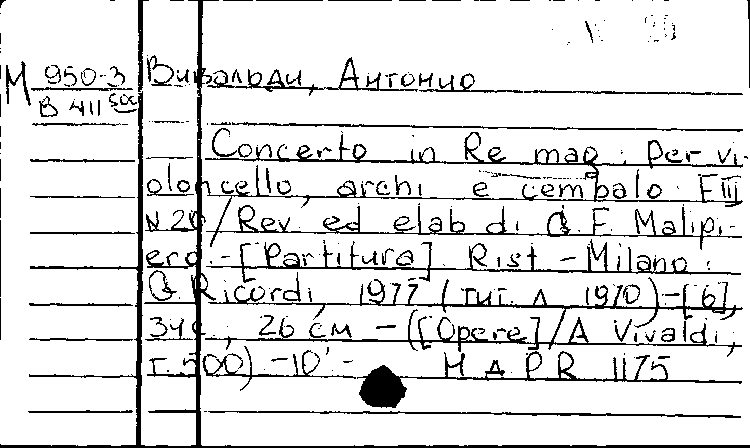 М 950-3 Вивальди, Антонио
В 411 500
Concerto in Re mag. : Per vi-
oloncello, archi e cembalo. F III
N 20 / Rev. ed elab. di G. F. Malipi-
ero. - [Partitura]. Rist. - Milano :
G. Ricordi, 1977 (тит. л. 1970) - [6],
34 с., 26 см - ([Opere] / A Vivaldi,
т. 500) - 10' -